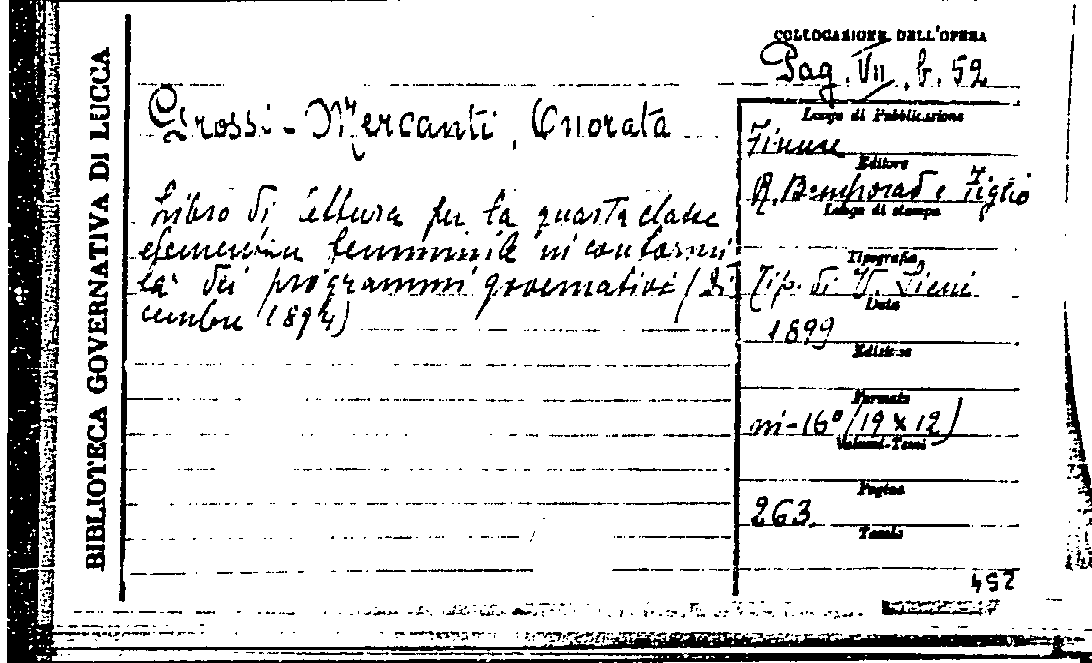 BIBLIOTECA GOVERNATIVA DI LUCCA
COLLOCAZIONE DELL'OPERA
Pag. VII. b. 52
Grossi-Mercanti, Onorata
Libro di lettura per la quarta classe
elementare femminile in conformi
tà dei programmi governativi (Di
cembre 1894)
Luogo di Pubblicazione
Firenze
Editore
R. Bemporad e Figlio
Luogo di stampa
Tipografia
Tip. di V. Sieni
Data
1899
Edizione
Formato
in-16° (19 x 12)
Volumi-Tomi
Pagine
263.
Tavole
452